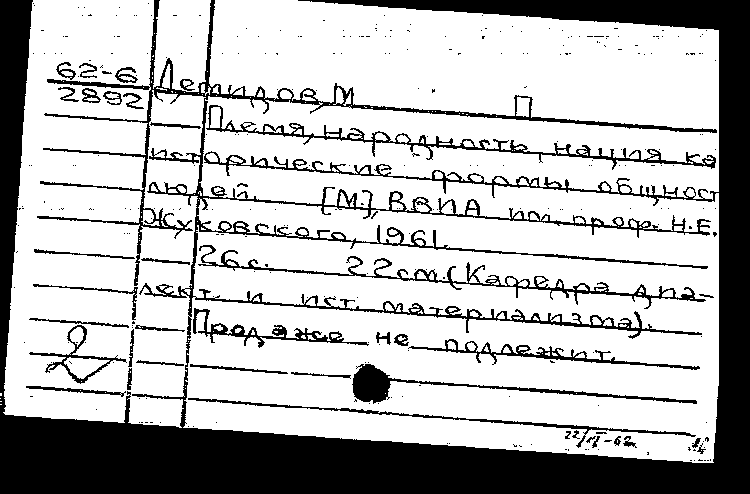 62-6 Демидов, М
2892 П
Племя, народность, нация ка
исторические формы общност
людей. [М], ВВИА им. проф. Н.Е.
Жуковского, 1961.
26с. 22см. (Кафедра диа-
лект. и ист. материализма).
Продаже не подлежит.
2